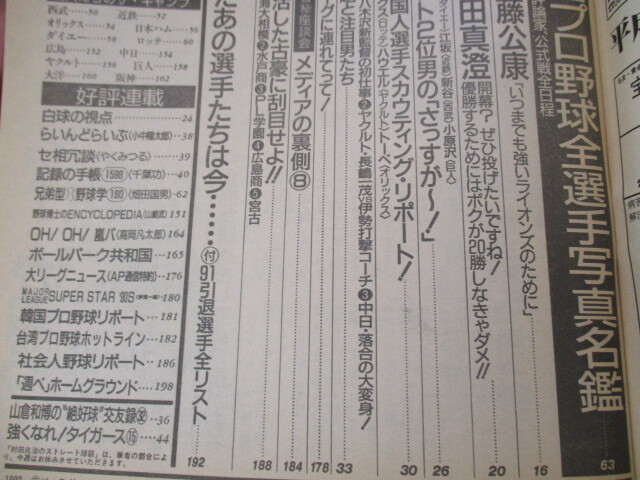 平成
プロ野球全選手写真名鑑 63
評論家、公式戦全日程
藤公康「いつまでも強いライオンズのために」 16
田真澄 開幕? ぜひ投げたいですね!
優勝するためにはボクが20勝しなきゃダメ!! 20
ト2位男の「さっすが〜!」 26
ダイエー・江坂(近鉄)新谷(西武)小原沢(巨人)
国人選手スカウティング・リポート! 30
クス(ロッテ)ハウエル(ヤクルト)トーベ(オリックス)
八木沢新監督の初仕事❷ヤクルト・長嶋一茂VS伊勢打撃コーチ❸中日・落合の大変身! 33
そ注目男たち
グに連れてって! 178
座談会 メディアの裏側⑧ 184
活した古豪に刮目せよ!! 188
海大相模❷水戸商❸PL学園❹広島商❺宮古
たあの選手たちは今‥‥‥ 付 '91引退選手全リスト 192
ザ・キャンプ
西武……50 近鉄……52
オリックス……54 日本ハム……56
ダイエー……58 ロッテ……60
広島……152 中日……154
ヤクルト……156 巨人……158
大洋……160 阪神……162
好評連載
白球の視点……24
らいんどらいぶ(小中陽太郎)……38
セ相冗談(やくみつる)……39
記録の手帳1598(千葉功)……40
兄弟型野球学160(畑田国男)……62
野球博士のENCYCLOPEDIA(山崎武)151
OH/OH/嵐パ(高岡凡太郎)164
ボールパーク共和国……165
大リーグニュース(AP通信特約)……176
MAJOR LEAGUE SUPER STAR '90S 180
韓国プロ野球リポート……181
台湾プロ野球ホットライン……182
社会人野球リポート……186
「週べ」ホームグラウンド……198
山倉和博の"絶好球"交友録……36
強くなれ!タイガース⑮……44
「村田兆治のストレート球談」は、筆者の都合により、今週はお休みさせていただきます。
1992